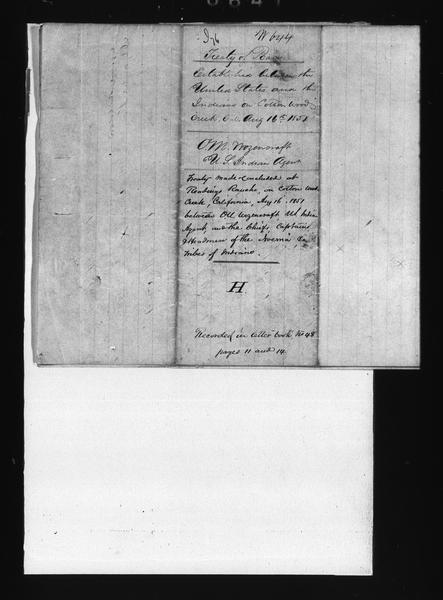 W 644
Treaty of Peace
Established between the
United States and the
Indians on Cotton Wood
Creek, Cal. Aug 16th 1851
O. M. Wozencraft
U. S. Indian Agent
Treaty made & concluded at
Readings Ranche, on Cotton Wood
Creek, California, Aug 16. 1851
between O M Wozencraft US Indian
Agent, and the Chiefs, Captains
& Headmen of the Noema &c
tribes of Indians.
H.
Recorded in letter book No 48
pages 11 and 14.